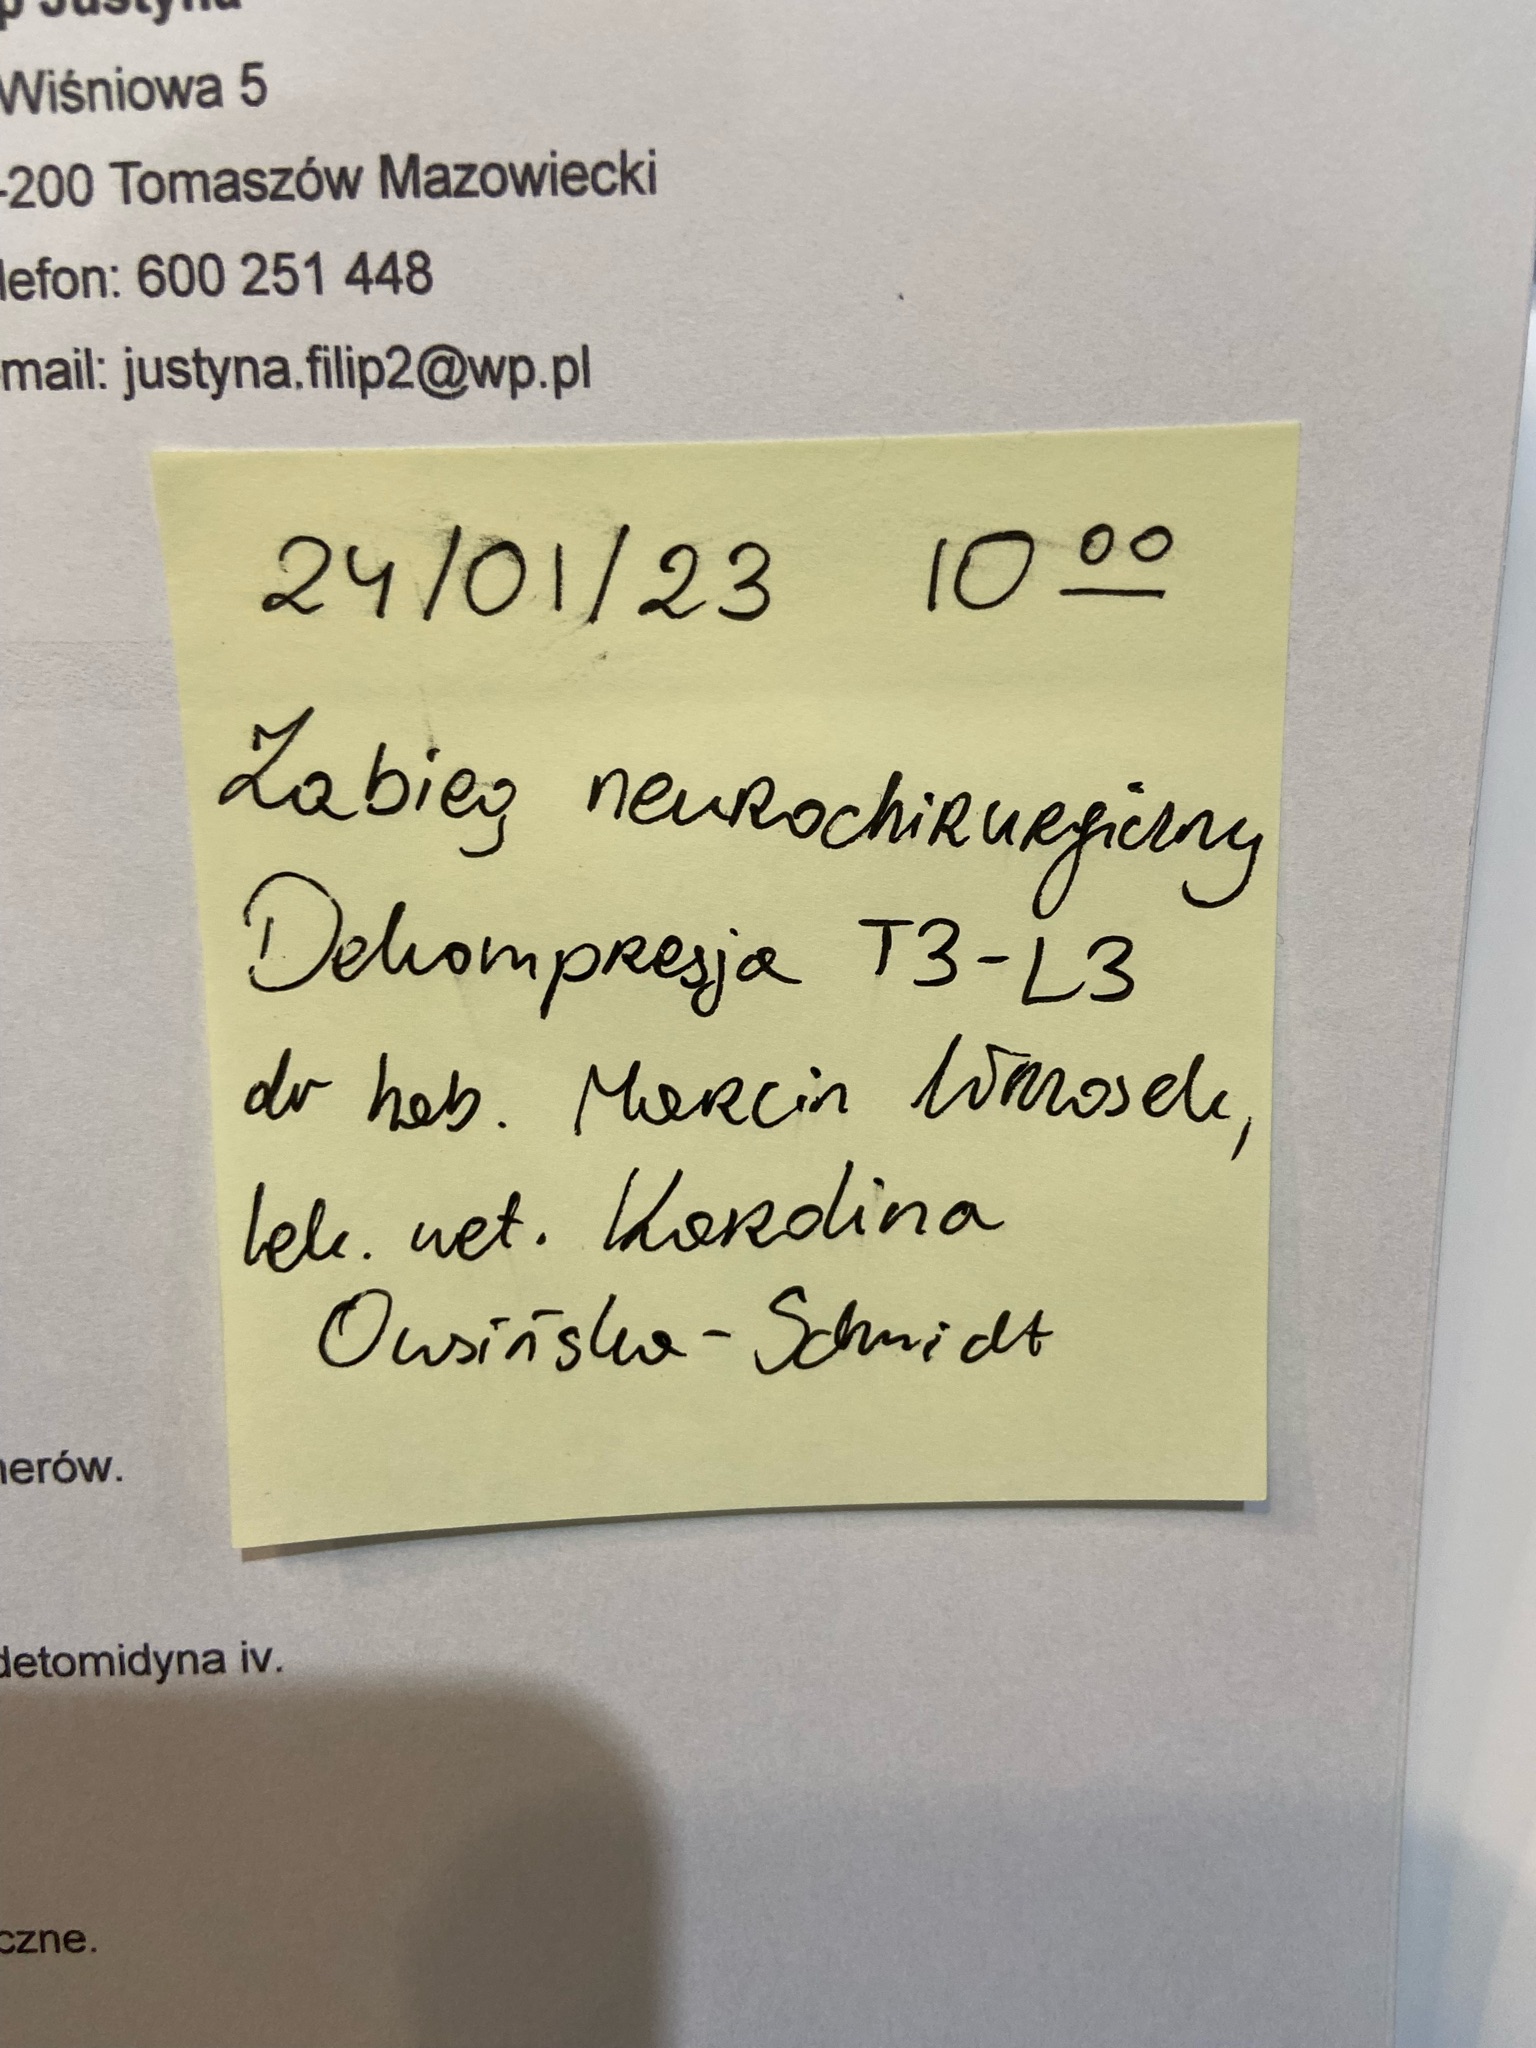 p Justyna
Wiśniowa 5
-200 Tomaszów Mazowiecki
lefon: 600 251 448
mail: justyna.filip2@wp.pl
24/01/23 10 00
Zabieg neurochirurgiczny
Dekompresja T3-L3
dr hab. Marcin Wrzosek,
lek. wet. Karolina
Owsińska-Schmidt
nerów.
detomidyna iv.
czne.